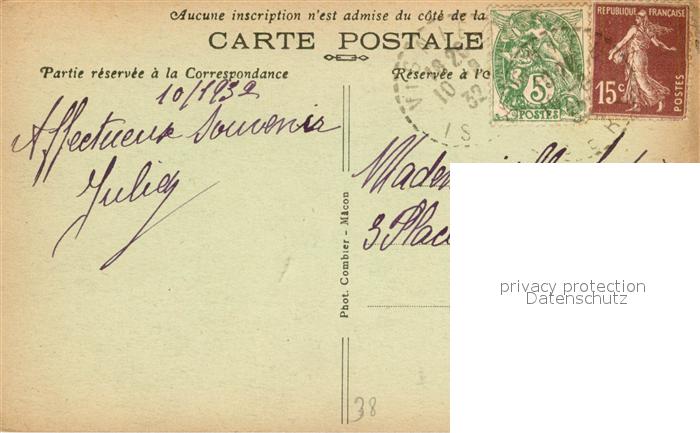 Aucune inscription n'est admise du côté de la
CARTE POSTALE
Partie réservée à la Correspondance
Réservée à l'
10/1932
Affectueux Souvenir
Phot. Combier – Mâcon
3 Place
5c
POSTES
REPUBLIQUE FRANÇAISE
15c
POSTES
privacy protection
Datenschutz
38